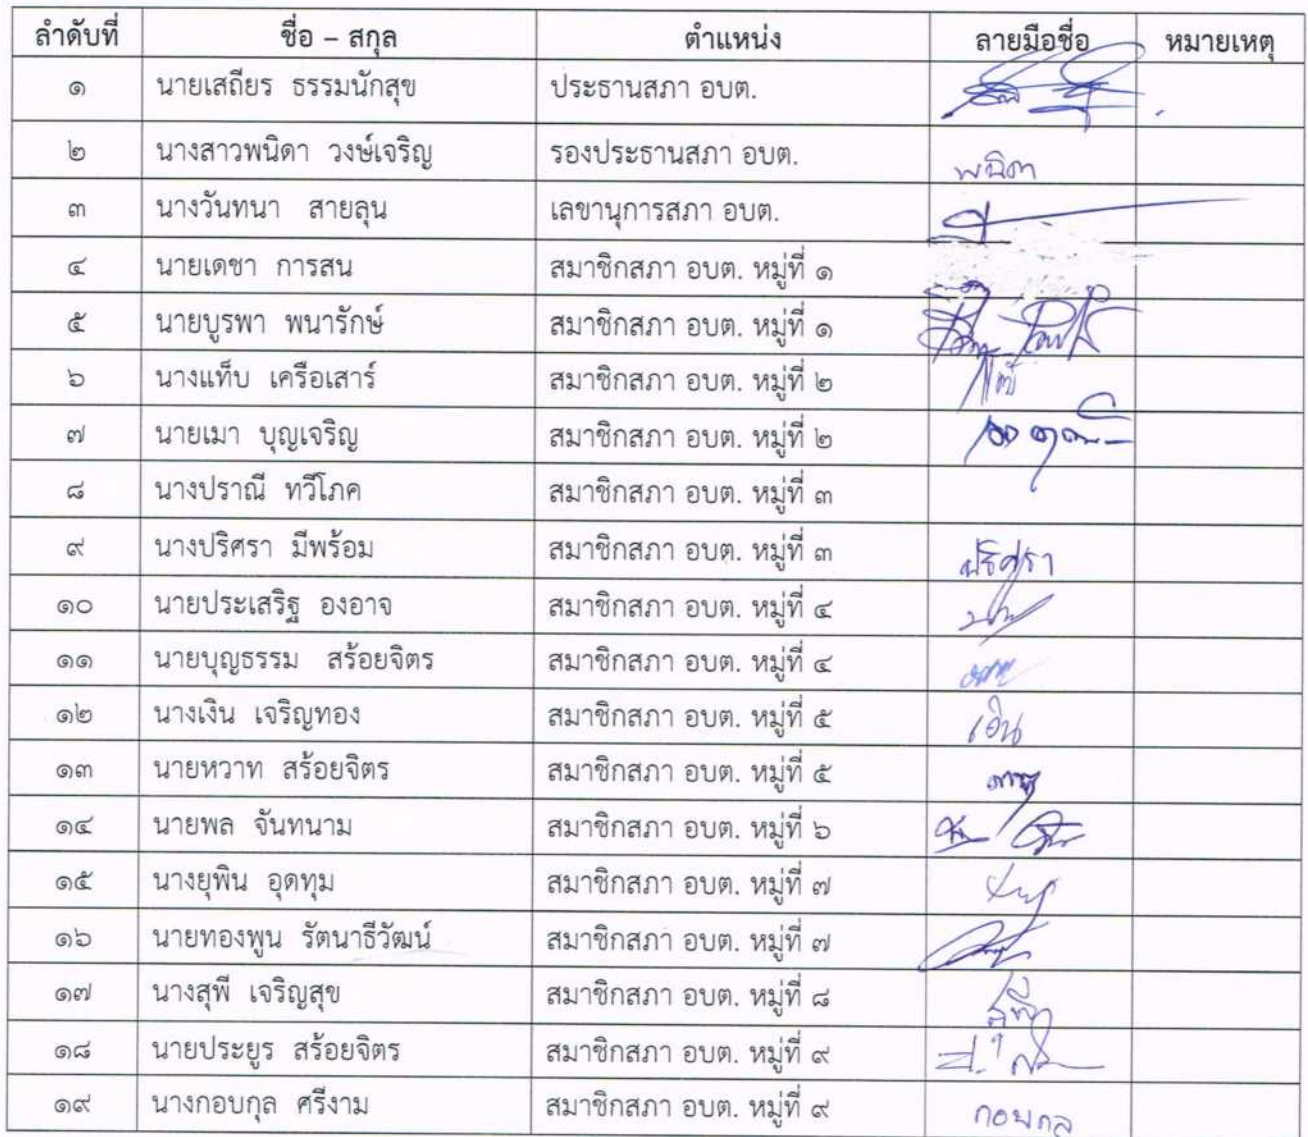 ลำดับที่ ชื่อ – สกุล ตำแหน่ง ลายมือชื่อ หมายเหตุ
๑ นายเสถียร ธรรมนักสุข ประธานสภา อบต.
๒ นางสาวพนิดา วงษ์เจริญ รองประธานสภา อบต. พนิดา
๓ นางวันทนา สายลุน เลขานุการสภา อบต.
๔ นายเดชา การสน สมาชิกสภา อบต. หมู่ที่ ๑
๕ นายบูรพา พนารักษ์ สมาชิกสภา อบต. หมู่ที่ ๑
๖ นางแท็บ เครือเสาร์ สมาชิกสภา อบต. หมู่ที่ ๒
๗ นายเมา บุญเจริญ สมาชิกสภา อบต. หมู่ที่ ๒
๘ นางปราณี ทวีโภค สมาชิกสภา อบต. หมู่ที่ ๓
๙ นางปริศรา มีพร้อม สมาชิกสภา อบต. หมู่ที่ ๓ ปริศรา
๑๐ นายประเสริฐ องอาจ สมาชิกสภา อบต. หมู่ที่ ๔
๑๑ นายบุญธรรม สร้อยจิตร สมาชิกสภา อบต. หมู่ที่ ๔
๑๒ นางเงิน เจริญทอง สมาชิกสภา อบต. หมู่ที่ ๕ เงิน
๑๓ นายหวาท สร้อยจิตร สมาชิกสภา อบต. หมู่ที่ ๕
๑๔ นายพล จันทนาม สมาชิกสภา อบต. หมู่ที่ ๖
๑๕ นางยุพิน อุดทุม สมาชิกสภา อบต. หมู่ที่ ๗
๑๖ นายทองพูน รัตนาธีวัฒน์ สมาชิกสภา อบต. หมู่ที่ ๗
๑๗ นางสุพี เจริญสุข สมาชิกสภา อบต. หมู่ที่ ๘ สุพี
๑๘ นายประยูร สร้อยจิตร สมาชิกสภา อบต. หมู่ที่ ๙
๑๙ นางกอบกุล ศรีงาม สมาชิกสภา อบต. หมู่ที่ ๙ กอบกุล